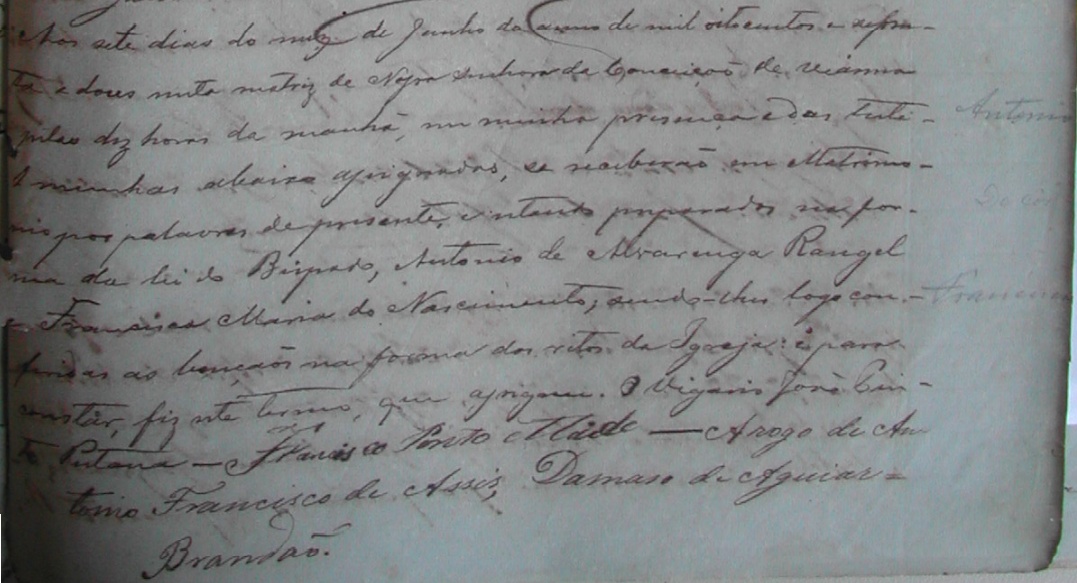 Aos sete dias do mez de Junho do anno de mil oitocentos e seten-
ta e doces nesta matriz de Nossa Senhora da Conceição de Vianna
pelas dez horas da manhã, em minha presença e das teste-
munhas abaixo assignadas, se receberão em Matrimo-
nio por palavras de presente, estando preparados na for-
ma da lei do Bispado, Antonio de Alvarenga Rangel
e Francisca Maria do Nascimento, sendo-lhes logo con-
feridas as bençãos na forma dos ritos da Igreja: e para
constár, fiz este termo, que assignei. O Vigario José
Francisco Pinto — Arogo de An-
tonio Francisco de Assis, Damaso de Aguiar =
Brandaõ.
Antonio
Francisca